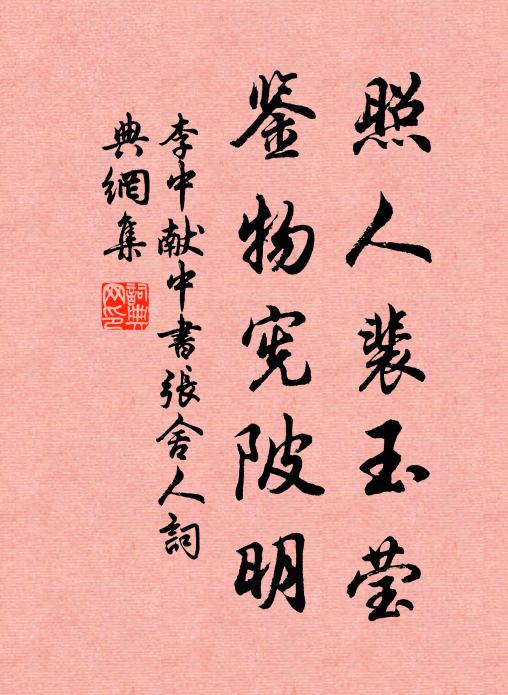 照人裴玉莹
鉴物宪陂明
李中献中書張舍人詞
典網集
詞典
网印